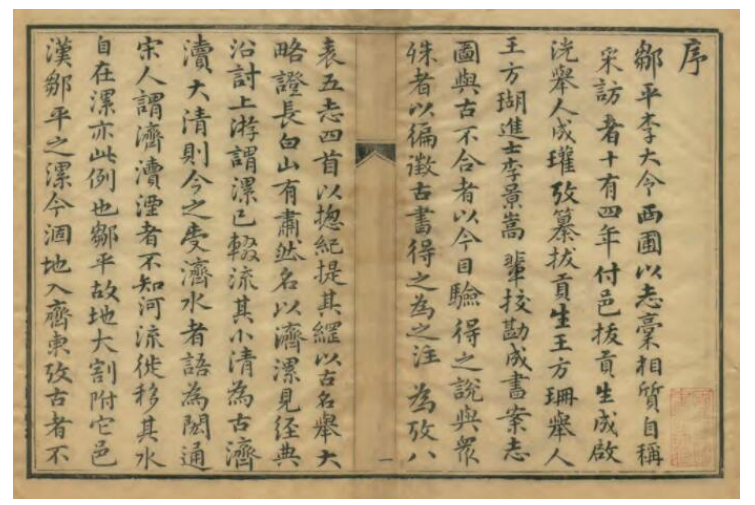 序
鄒平李大令西圃以志稾相質自稱
采訪者十有四年付邑拔貢生成啟
洸舉人成瓘攷纂拔貢生王方珊舉人
王方瑚進士李景嵩輩挍勘成書案志
圖與古不合者以今目驗得之說與衆
殊者以徧徵古書得之為之注為攷八
表五志四首以揔紀提其綱以古名舉大
略證長白山有肅然名以濟漯見經典
沿討上游謂漯已輟流其小清為古濟
瀆大清則今之受濟水者語為閎通
宋人謂濟瀆湮者不知河流徙移其水
自在漯亦此例也鄒平故地大割附它邑
漢鄒平之漯今涸地入齊東攷古者不
一